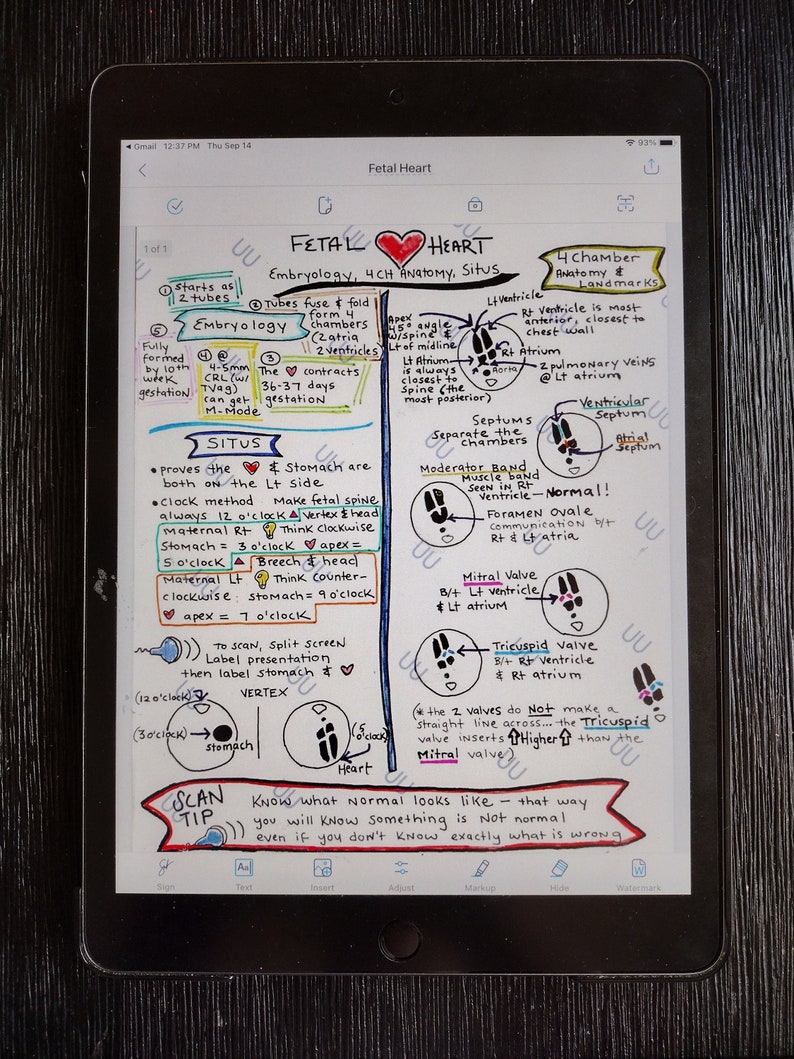 Gmail 12:37 PM Thu Sep 14 93%
Fetal Heart
1 of 1
FETAL HEART
Embryology, 4CH Anatomy, Situs
① starts as
2 tubes
② Tubes fuse & fold
form 4
chambers
(2 atria
2 ventricles)
Embryology
⑤
Fully
formed
by 10th
week
gestation
④ @
4-5mm
CRL (w/
TVag)
can get
M-Mode
③
The ❤ contracts
36-37 days
gestation
SITUS
• proves the ❤ & Stomach are
both on the Lt side
• Clock method Make fetal spine
always 12 o'clock ▲ Vertex & head
Maternal Rt 💡 Think Clockwise
Stomach = 3 o'clock ❤ apex =
5 o'clock ▲ Breech & head
Maternal Lt 💡 Think counter-
clockwise stomach = 9 o'clock
❤ apex = 7 o'clock
to scan, split screen
Label presentation
then label stomach & ❤
VERTEX
(12 o'clock)
(3 o'clock)
stomach
(5
o'clock)
Heart
4 Chamber
Anatomy &
Landmarks
Apex
45° angle
w/spine &
Lt of midline
Lt Ventricle
Rt Ventricle is most
anterior, closest to
chest wall
Rt Atrium
Lt Atrium
is always
closest to
Spine (the
most posterior)
Aorta
2 pulmonary veins
@ Lt atrium
Septums
Separate the
chambers
Ventricular
Septum
Atrial
Septum
Moderator Band
Muscle band
seen in Rt
Ventricle — Normal!
Foramen Ovale
communication b/t
Rt & Lt atria
Mitral Valve
B/t Lt ventricle
& Lt atrium
Tricuspid Valve
B/t Rt ventricle
& Rt atrium
(* the 2 valves do NOT make a
straight line across... the Tricuspid
valve inserts ⇧Higher⇧ than the
Mitral valve)
SCAN
TIP
Know what normal looks like – that way
you will know something is Not normal
even if you don't know exactly what is wrong
UU
Sign Text Insert Adjust Markup Hide Watermark